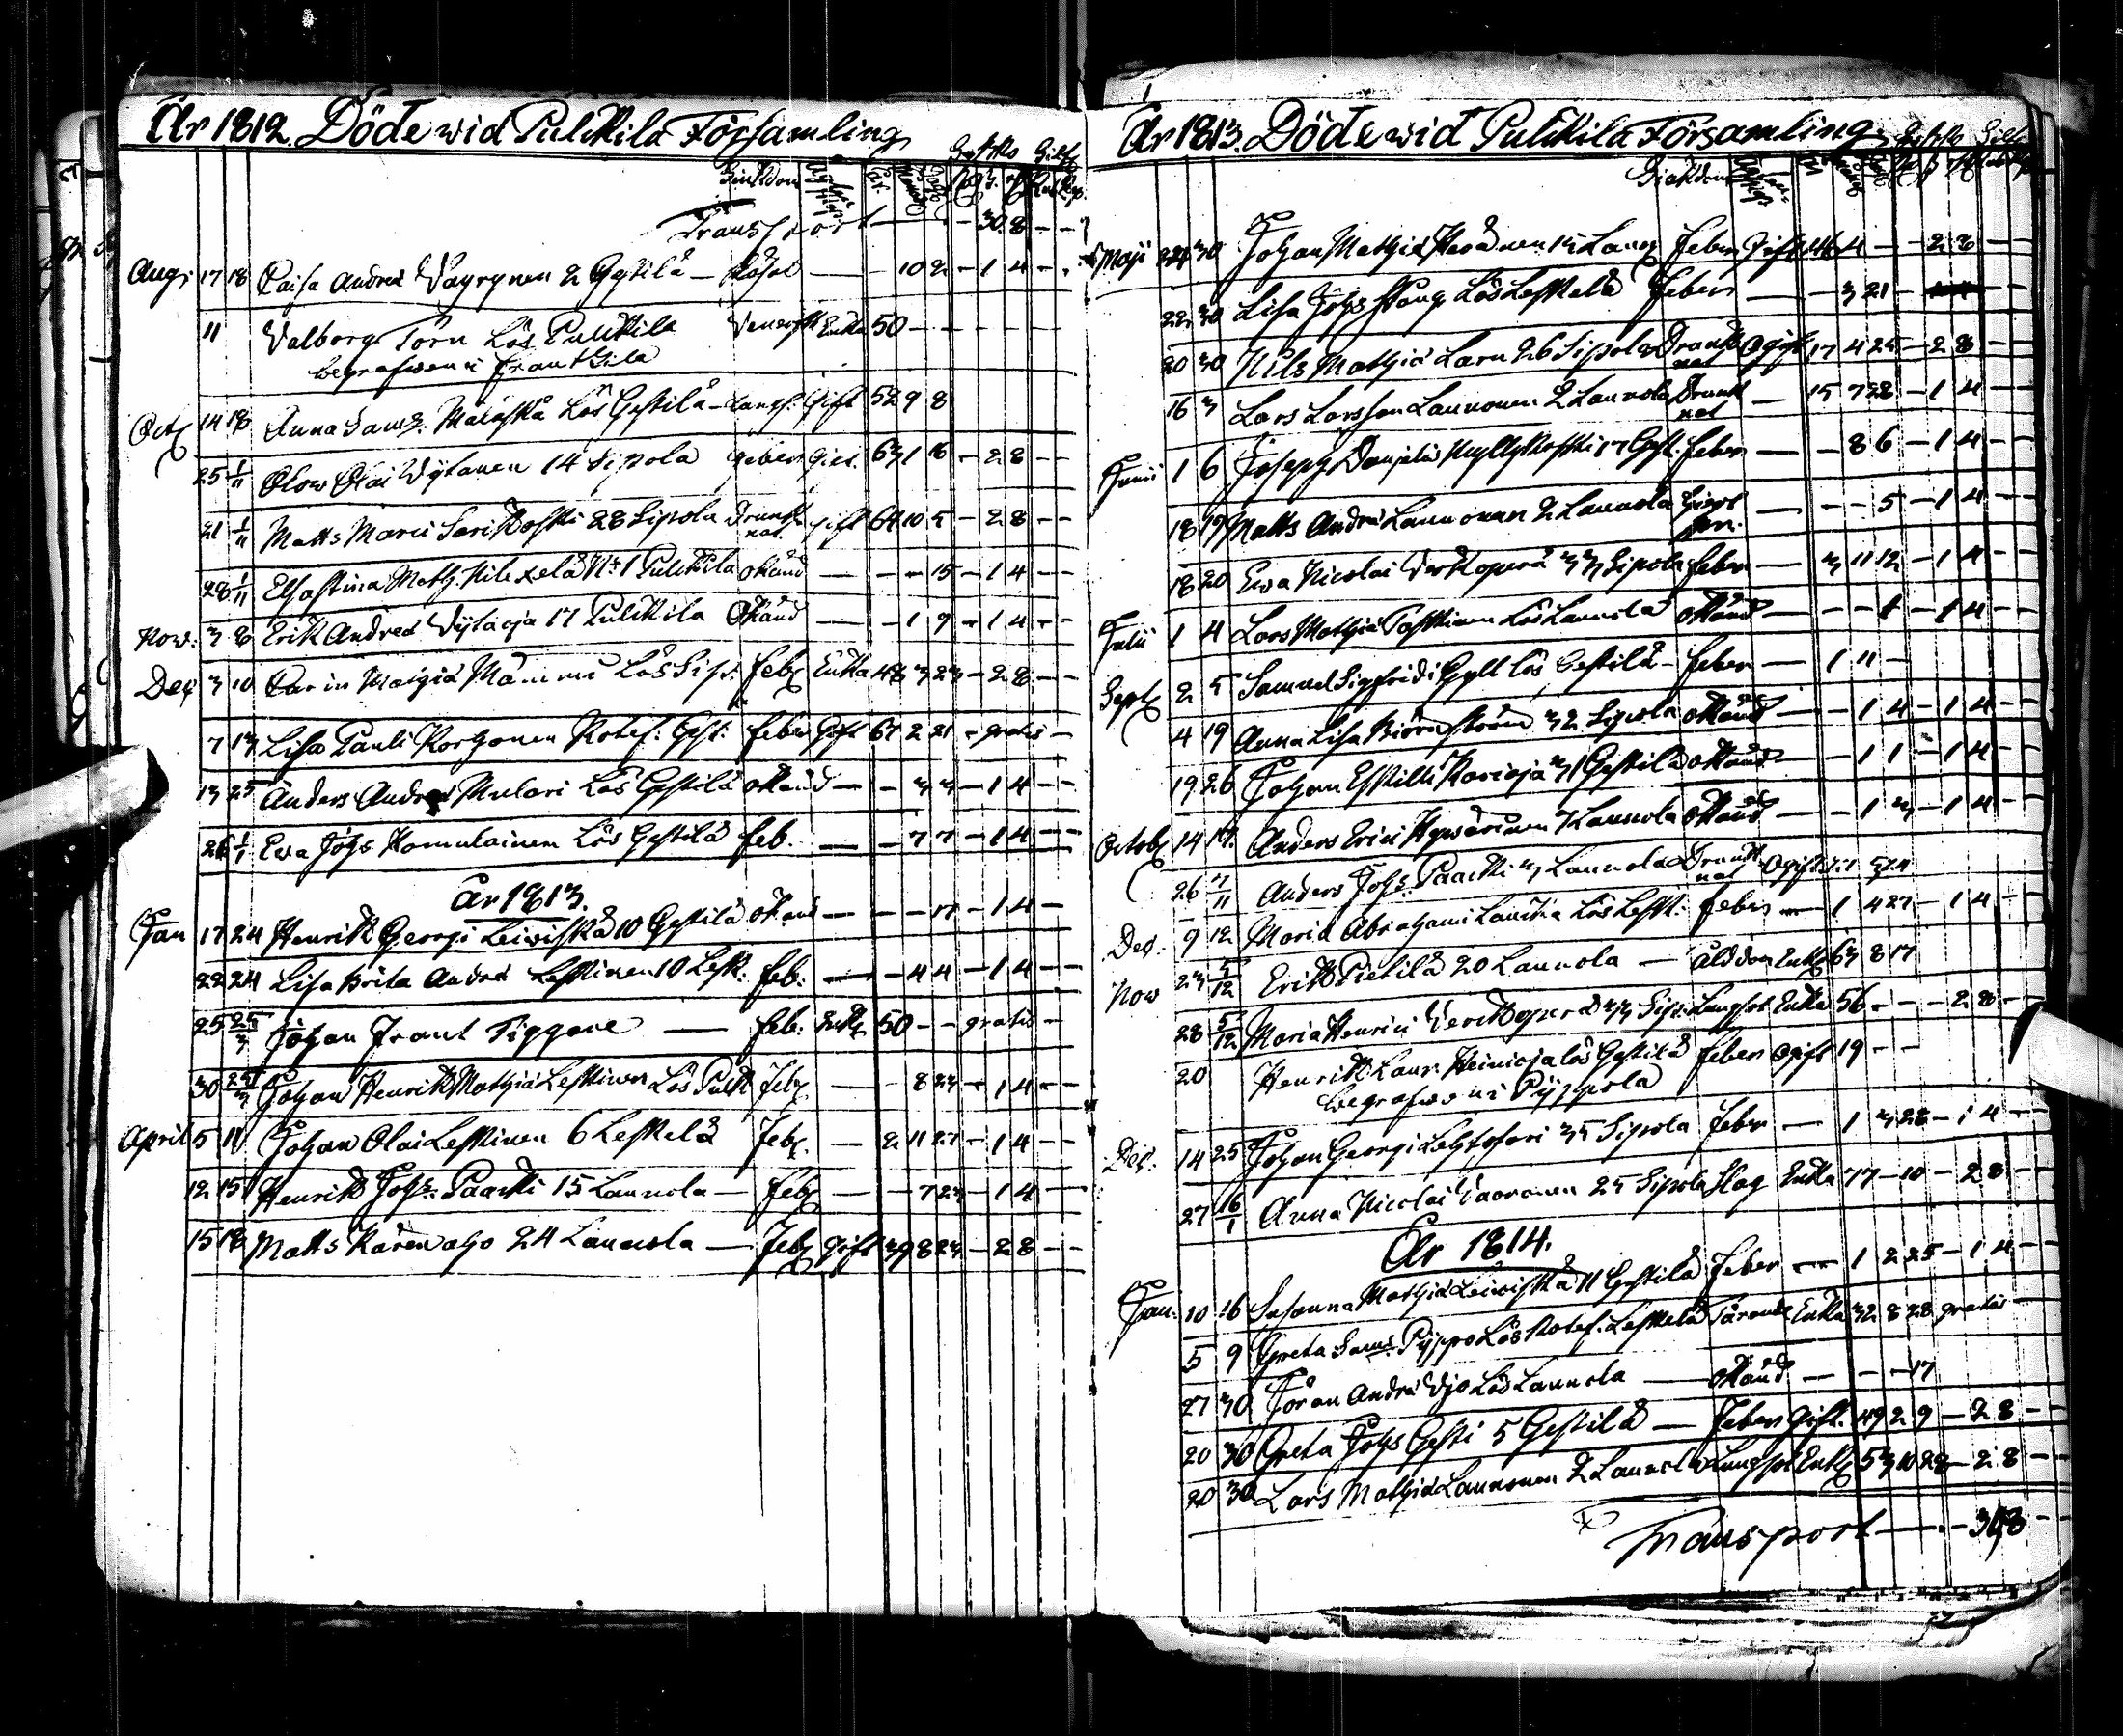 År 1812 Döde wid Pulkkila Församling
Sjukdom År Månad Dagar
Transport — — 30 8 — —
Aug: 17 18 Caisa Andrea Väyrynen 2 Gestilä — Råsot — — 10 2 — 1 4 — —
11 Valborg Törn Lös Pulkkila Venerisk Enka 50 — — — —
begrafwen i Frantzila
Oct: 14 18 Anna Sam: Määttä Lös Gestilä — Lungs: Gift 52 9 8
25 1/11 Olow Olai Wytanen 14 Sipola Feber Gift 63 1 16 — 2 8 — —
21 1/11 Matts Marci Sarikoski 28 Sipola Drunknat gift 64 10 5 — 2 8 — —
28 1/11 Elsa Stina Math: Kilexelä N:1 Pulkkila okänd — — — 15 — 1 4 — —
Now: 3 8 Erik Andrea Vytaoja 17 Pulkkila Okänd — — 1 9 — 1 4 — —
Dec 3 10 Carin Mathiæ Mämmi Lös Sip: feb: Enka 48 3 23 — 2 8 — —
7 13 Lisa Pauli Korhonen Rotef: Gest: feber Gift 67 2 21 — gratis —
13 25 Anders Andreæ Mulari Lös Gestilä okänd — — 3 3 — 1 4 — —
26 1/1 Ewa Johs Komulainen Lös Gestilä feb. — — 7 7 — 1 4 — —
År 1813.
Jan 17 24 Henrik Georgi Leiwiskä 10 Gestilä okänd — — — 17 — 1 4 —
22 24 Lisa Brita Andreæ Leskinen 10 Lesk: feb: — — 4 4 — 1 4 — —
25 25/3 Johan Frant Tiggare — feb: Enkl 50 — — gratis —
30 25/3 Johan Henrik Mathiæ Leskinen Lös Pulk feb: — — 8 23 — 1 4 — —
April 5 11 Johan Olai Leskinen 6 Leskelä feb: — 2 11 27 — 1 4 — —
12 15 Henrik Johs: Paakki 15 Laurola — feb: — — 7 23 — 1 4 — —
15 18 Matts Kärenaho 24 Laurola — feb: gift 39 8 23 — 2 8 — —
År 1813. Döde wid Pulkkila Församling
Sjukdom
Maji 24 30 Johan Mathiæ 15 Feber Gift 46 4 — — 2 8 —
22 30 Lisa Johs Lös Leskelä feber — — 3 21 —
20 30 Nils Mathiæ 26 Sipola Drunknat Ogift 17 4 25 — 2 8 —
16 3 Lars Larsson Launonen 2 Laurola Drunknat — 15 7 28 — 1 4
Junii 1 6 Joseph Danjelis Myllykoski 17 Gest. feber — — 8 6 — 1 4 — —
18 19 Matts Andreæ Launonen 2 Laurola — — — 5 — 1 4 — —
18 20 Ewa Nicolai Verkoperä 33 Sipola feber — 3 11 12 — 1 4 — —
Julii 1 4 Lars Mathiæ Paskinen Lös Laurola okänd — — — 1 — 1 4 — —
Sept: 2 5 Samuel Sigfridi Gyll lös Gestilä — feber — 1 11 —
4 19 Anna Lisa Björnström 32 Sipola okänd — — 1 4 — 1 4 — —
19 26 Johan Eskilli Karioja 31 Gestilä okänd — — 1 1 — 1 4 — —
Octob: 14 17. Anders Erici Hywärinen 7 Laurola okänd — — 1 3 — 1 4 — —
26 7/11 Anders Johs: Paakki 3 Laurola Drunknat Ogift
Dec: 9 12 Maria Abrahami Laurila Lös Lesk: feber — 1 4 27 — 1 4 — —
Now 23 5/12 Erik Pietilä 20 Laurola — Ålddom Enkl 63 8 17
28 5/12 Maria Henrici Verkoperä 33 Sip: Lungsot Enka 56 — — — 2 8 — —
20 Henrik Laur: Heinioja lös Gestilä feber ogift 19 — —
begrafwen i Pyhjola
Dec: 14 25 Johan Georgi 35 Sipola feber — 1 3 28 — 1 4 — —
27 16/1 Anna Nicolai Vaaranen 25 Sipola Slag Enka 77 — 10 — 2 8 — —
År 1814.
Jan: 10 16 Susanna Mathiæ Leiwiskä 11 Gestilä Feber — 1 2 25 — 1 4 — —
5 9 Greta Sam: Pyppo Lös Rotef: Leskelä Tärande Enka 32 8 28 gratis —
27 30 Jöran Andreæ Ojo Lös Laurola — okänd — — — 17
20 30 Greta Johs Gesti 5 Gestilä — Feber gift. 49 2 9 — 2 8 — —
20 30 Lars Mathiæ Launonen 2 Laurola Lungsot Enkl 53 10 28 — 2 8 — —
Transport — —